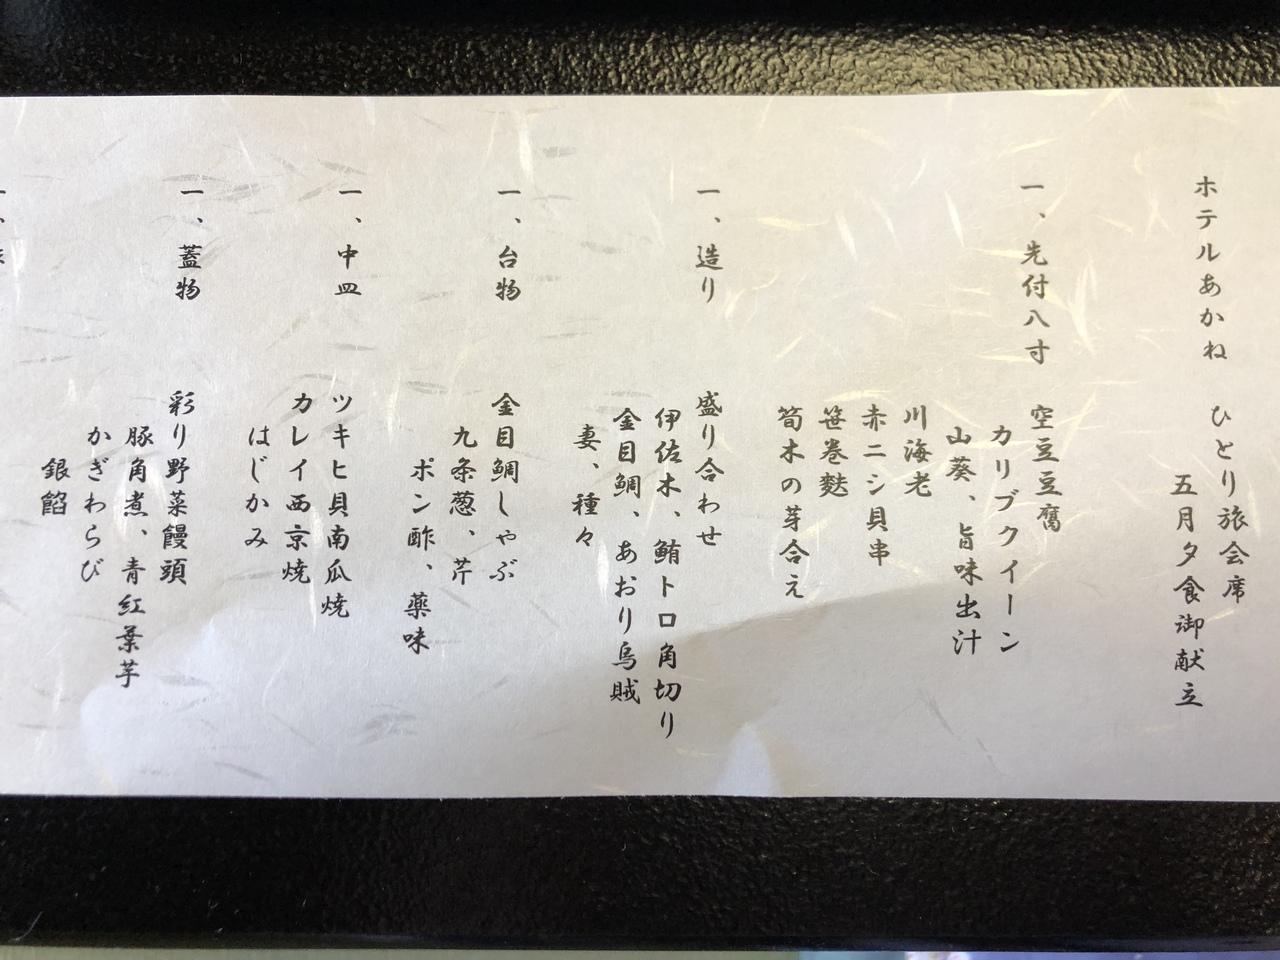 ホテルあかね
ひとり旅会席
五月夕食御献立
一、先付八寸
空豆豆腐
カリブクイーン
山葵、旨味出汁
川海老
赤ニシ貝串
笹巻麩
筍木の芽合え
一、造り
盛り合わせ
伊佐木、鮪トロ角切り
金目鯛、あおり烏賊
妻、種々
一、台物
金目鯛しゃぶ
九条葱、芹
ポン酢、薬味
一、中皿
ツキヒ貝南瓜焼
カレイ西京焼
はじかみ
一、蓋物
彩り野菜饅頭
豚角煮、青紅葉芋
かぎわらび
銀餡
一、